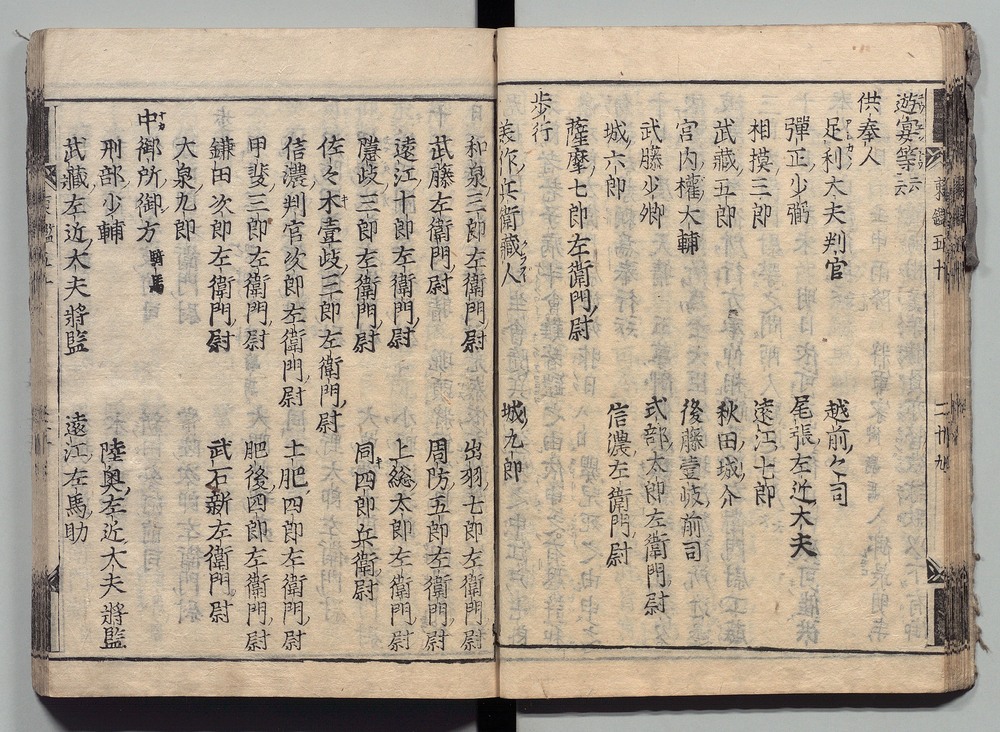 遊宴等云云
供奉人
足利大夫判官　越前々司
彈正少弼　尾張左近大夫
相摸三郎　遠江七郎
武藏五郎　秋田城介
宮内權大輔　後藤壹岐前司
武藤少卿　式部太郎左衛門尉
城六郎　信濃左衛門尉
薩摩七郎左衛門尉
歩行
美作兵衛藏人　城九郎
和泉三郎左衛門尉　出羽七郎左衛門尉
武藤左衛門尉　周防五郎左衛門尉
遠江十郎左衛門尉　上総太郎左衛門尉
隱岐三郎左衛門尉　同四郎兵衛尉
佐々木壹岐三郎左衛門尉
信濃判官次郎左衛門尉　土肥四郎左衛門尉
甲斐三郎左衛門尉　肥後四郎左衛門尉
鎌田次郎左衛門尉　武石新左衛門尉
大泉九郎
中御所御方 騎馬
刑部少輔　陸奥左近大夫將監
武藏左近大夫將監　遠江左馬助